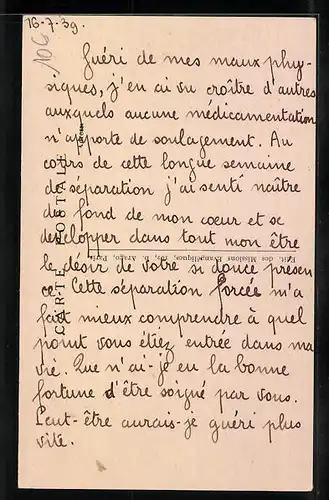 16-7-39.
106
Guéri de mes maux phy-
siques, j'en ai vu croître d'autres
auxquels aucune médicamentation
n'apporte de soulagement. Au
cours de cette longue semaine
de séparation j'ai senti naître
du fond de mon cœur et se
developper dans tout mon être
le désir de votre si douce presen
ce. Cette séparation forcée m'a
fait mieux comprendre à quel
point vous étiez entrée dans ma
vie. Que n'ai-je eu la bonne
fortune d'être soigné par vous.
Peut-être aurais-je guéri plus
vite.
CARTE POSTALE
Edit. des Missions Evangéliques, 102, b. Arago, Paris